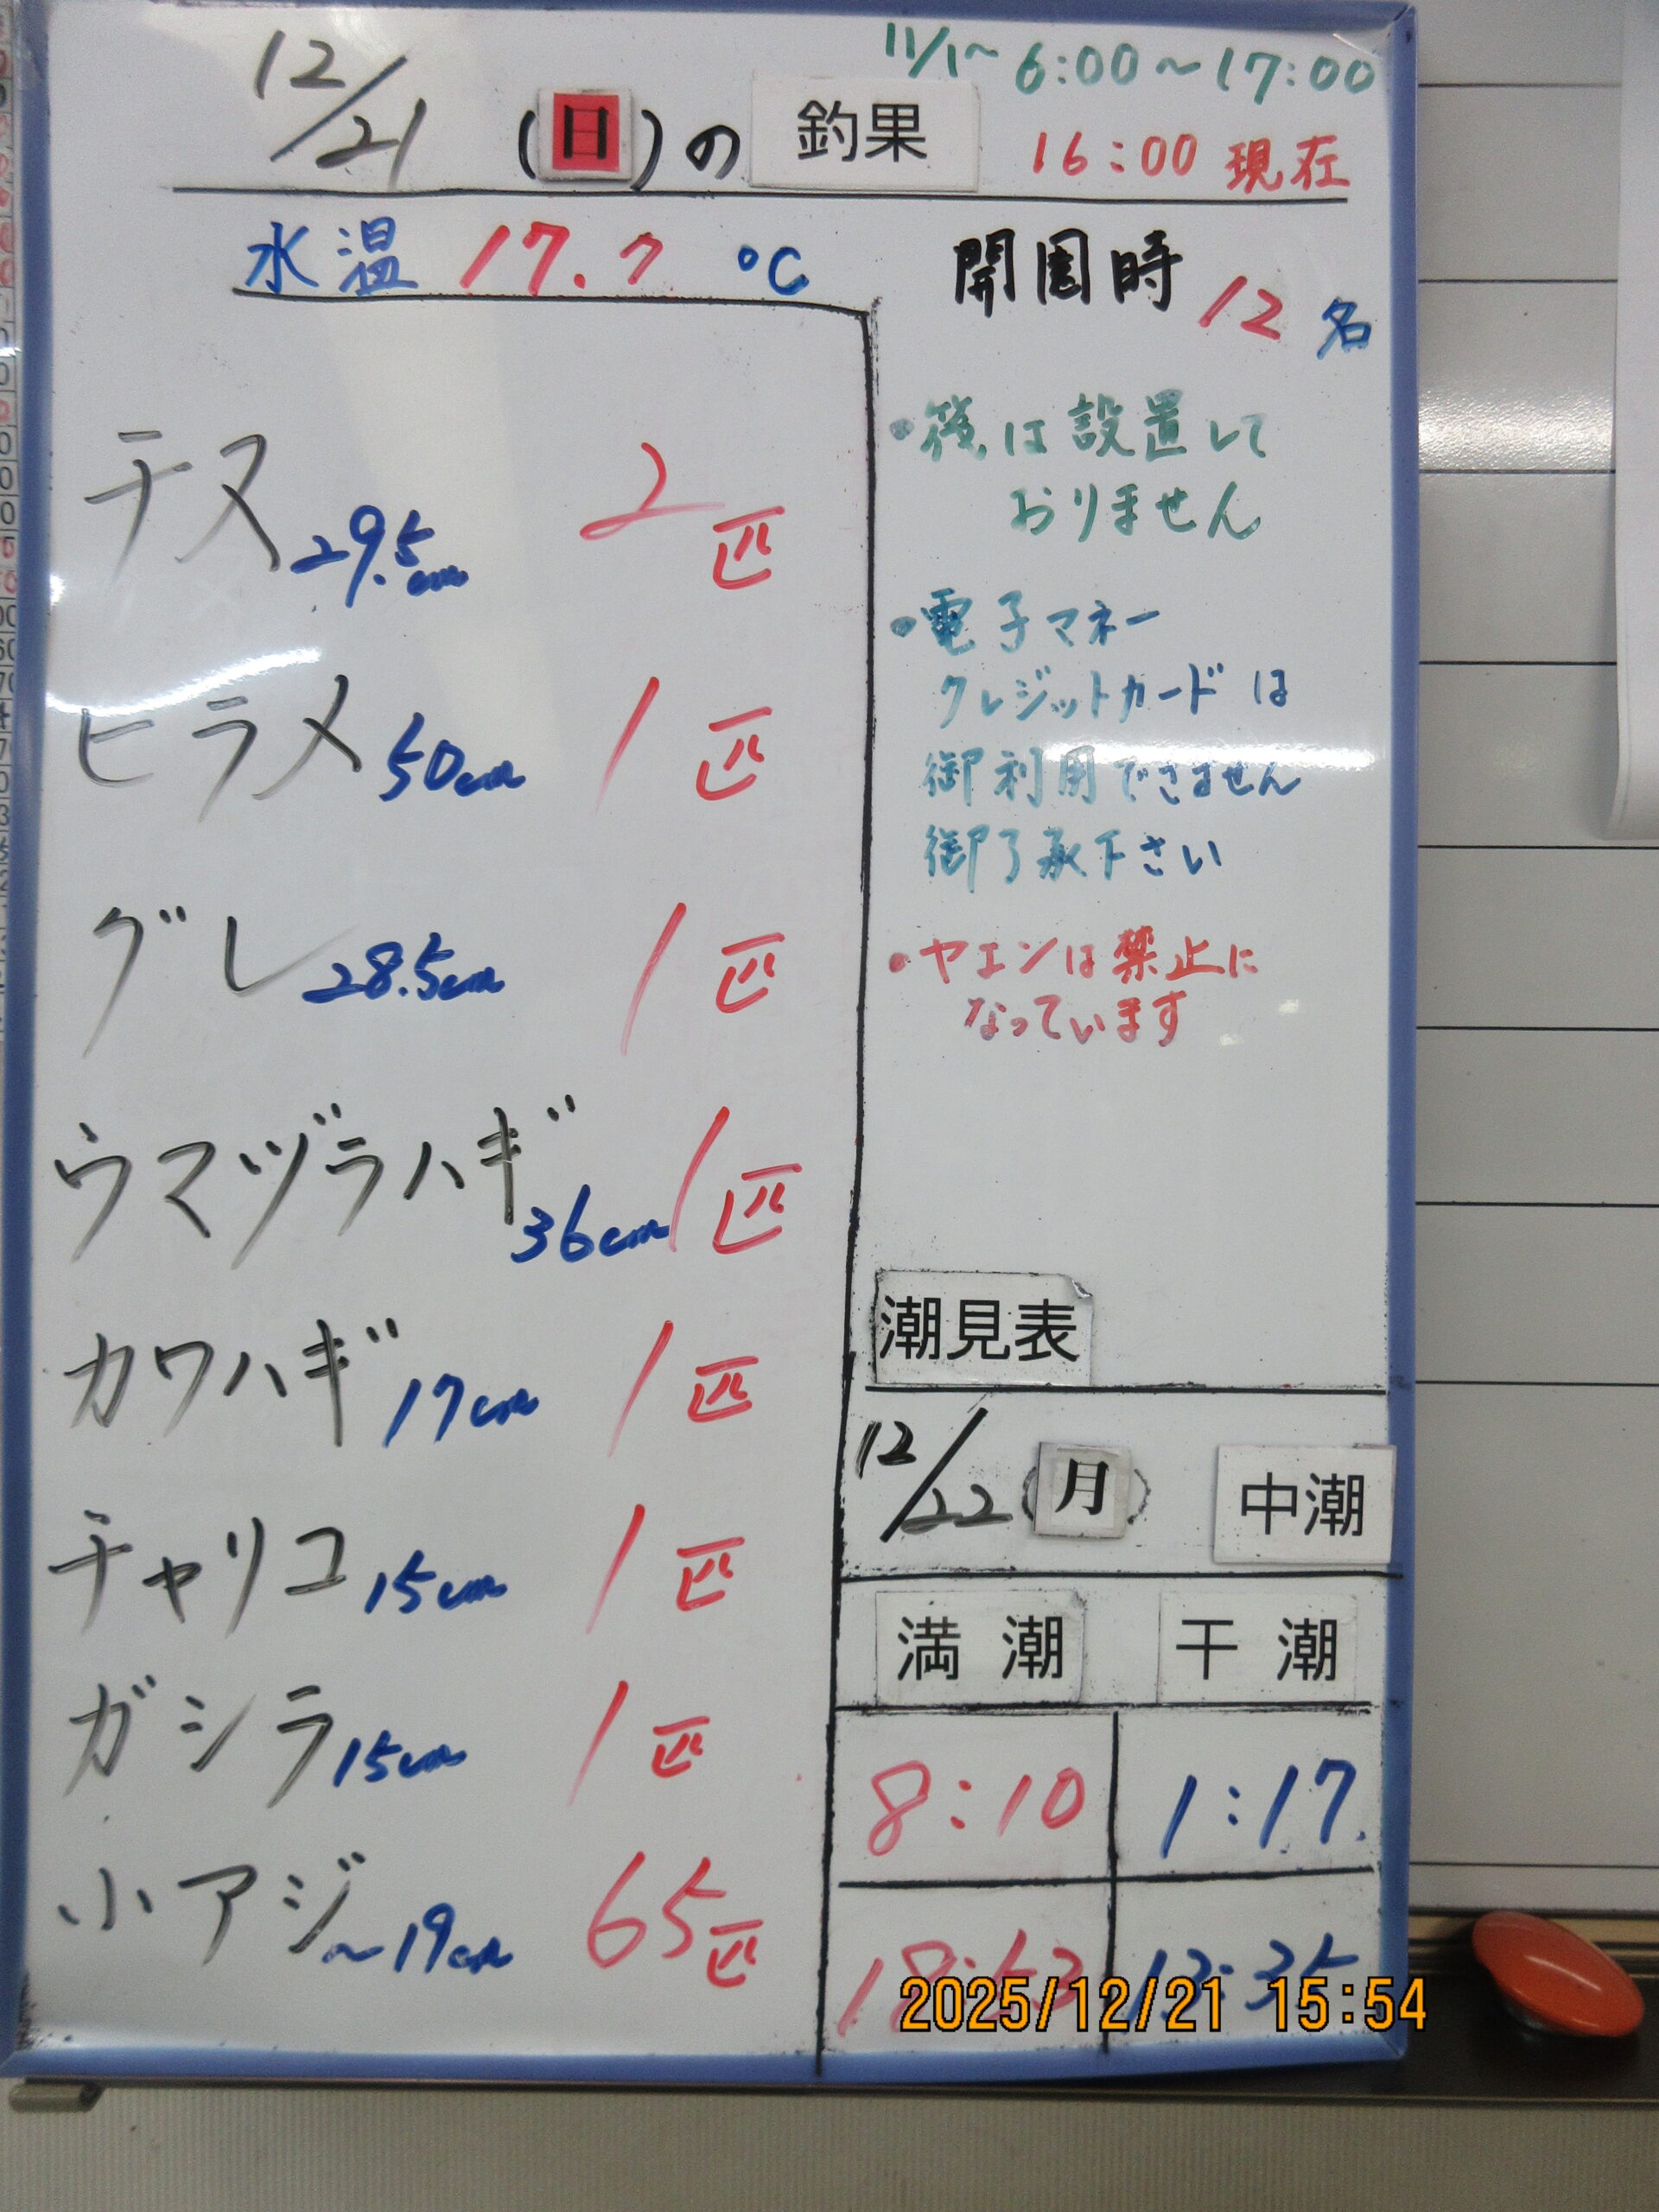 11/1〜 6:00〜17:00
12/21 (日)の 釣果 16:00 現在
水温 17.7 ℃
開園時 12 名
チヌ 29.5cm 2匹
ヒラメ 50cm 1匹
グレ 28.5cm 1匹
ウマヅラハギ 36cm 1匹
カワハギ 17cm 1匹
チャリコ 15cm 1匹
ガシラ 15cm 1匹
小アジ 〜19cm 65匹
は設置して
おりません
・電子マネー
クレジットカードは
御利用できません
御了承下さい
・ヤエンは禁止に
なっています
潮見表
12/22 (月) 中潮
満潮 干潮
8:10 1:17
18:53 13:35
2025/12/21 15:54